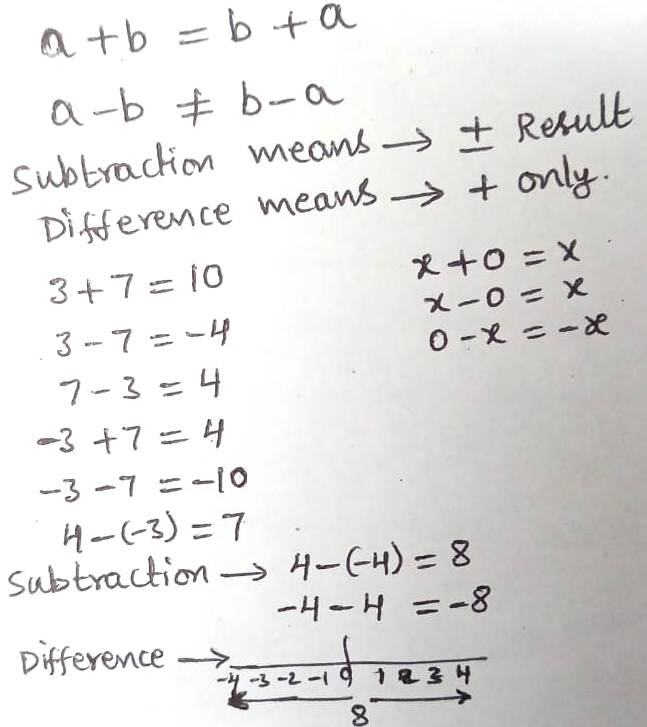 a + b = b + a
a - b ≠ b - a
Subtraction means → ± Result
Difference means → + only.
3 + 7 = 10
3 - 7 = -4
7 - 3 = 4
-3 + 7 = 4
-3 - 7 = -10
4 - (-3) = 7
x + 0 = x
x - 0 = x
0 - x = -x
Subtraction → 4 - (-4) = 8
-4 - 4 = -8
Difference →
-4 -3 -2 -1 0 1 2 3 4
8